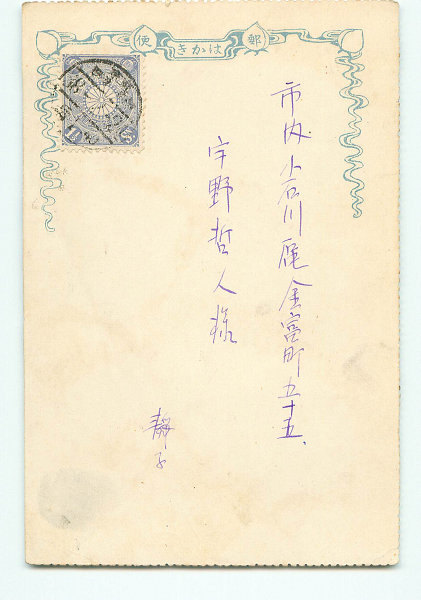 郵便はかき
市内小石川区金富町五十五、
宇野哲人様
静子
1½ Sn